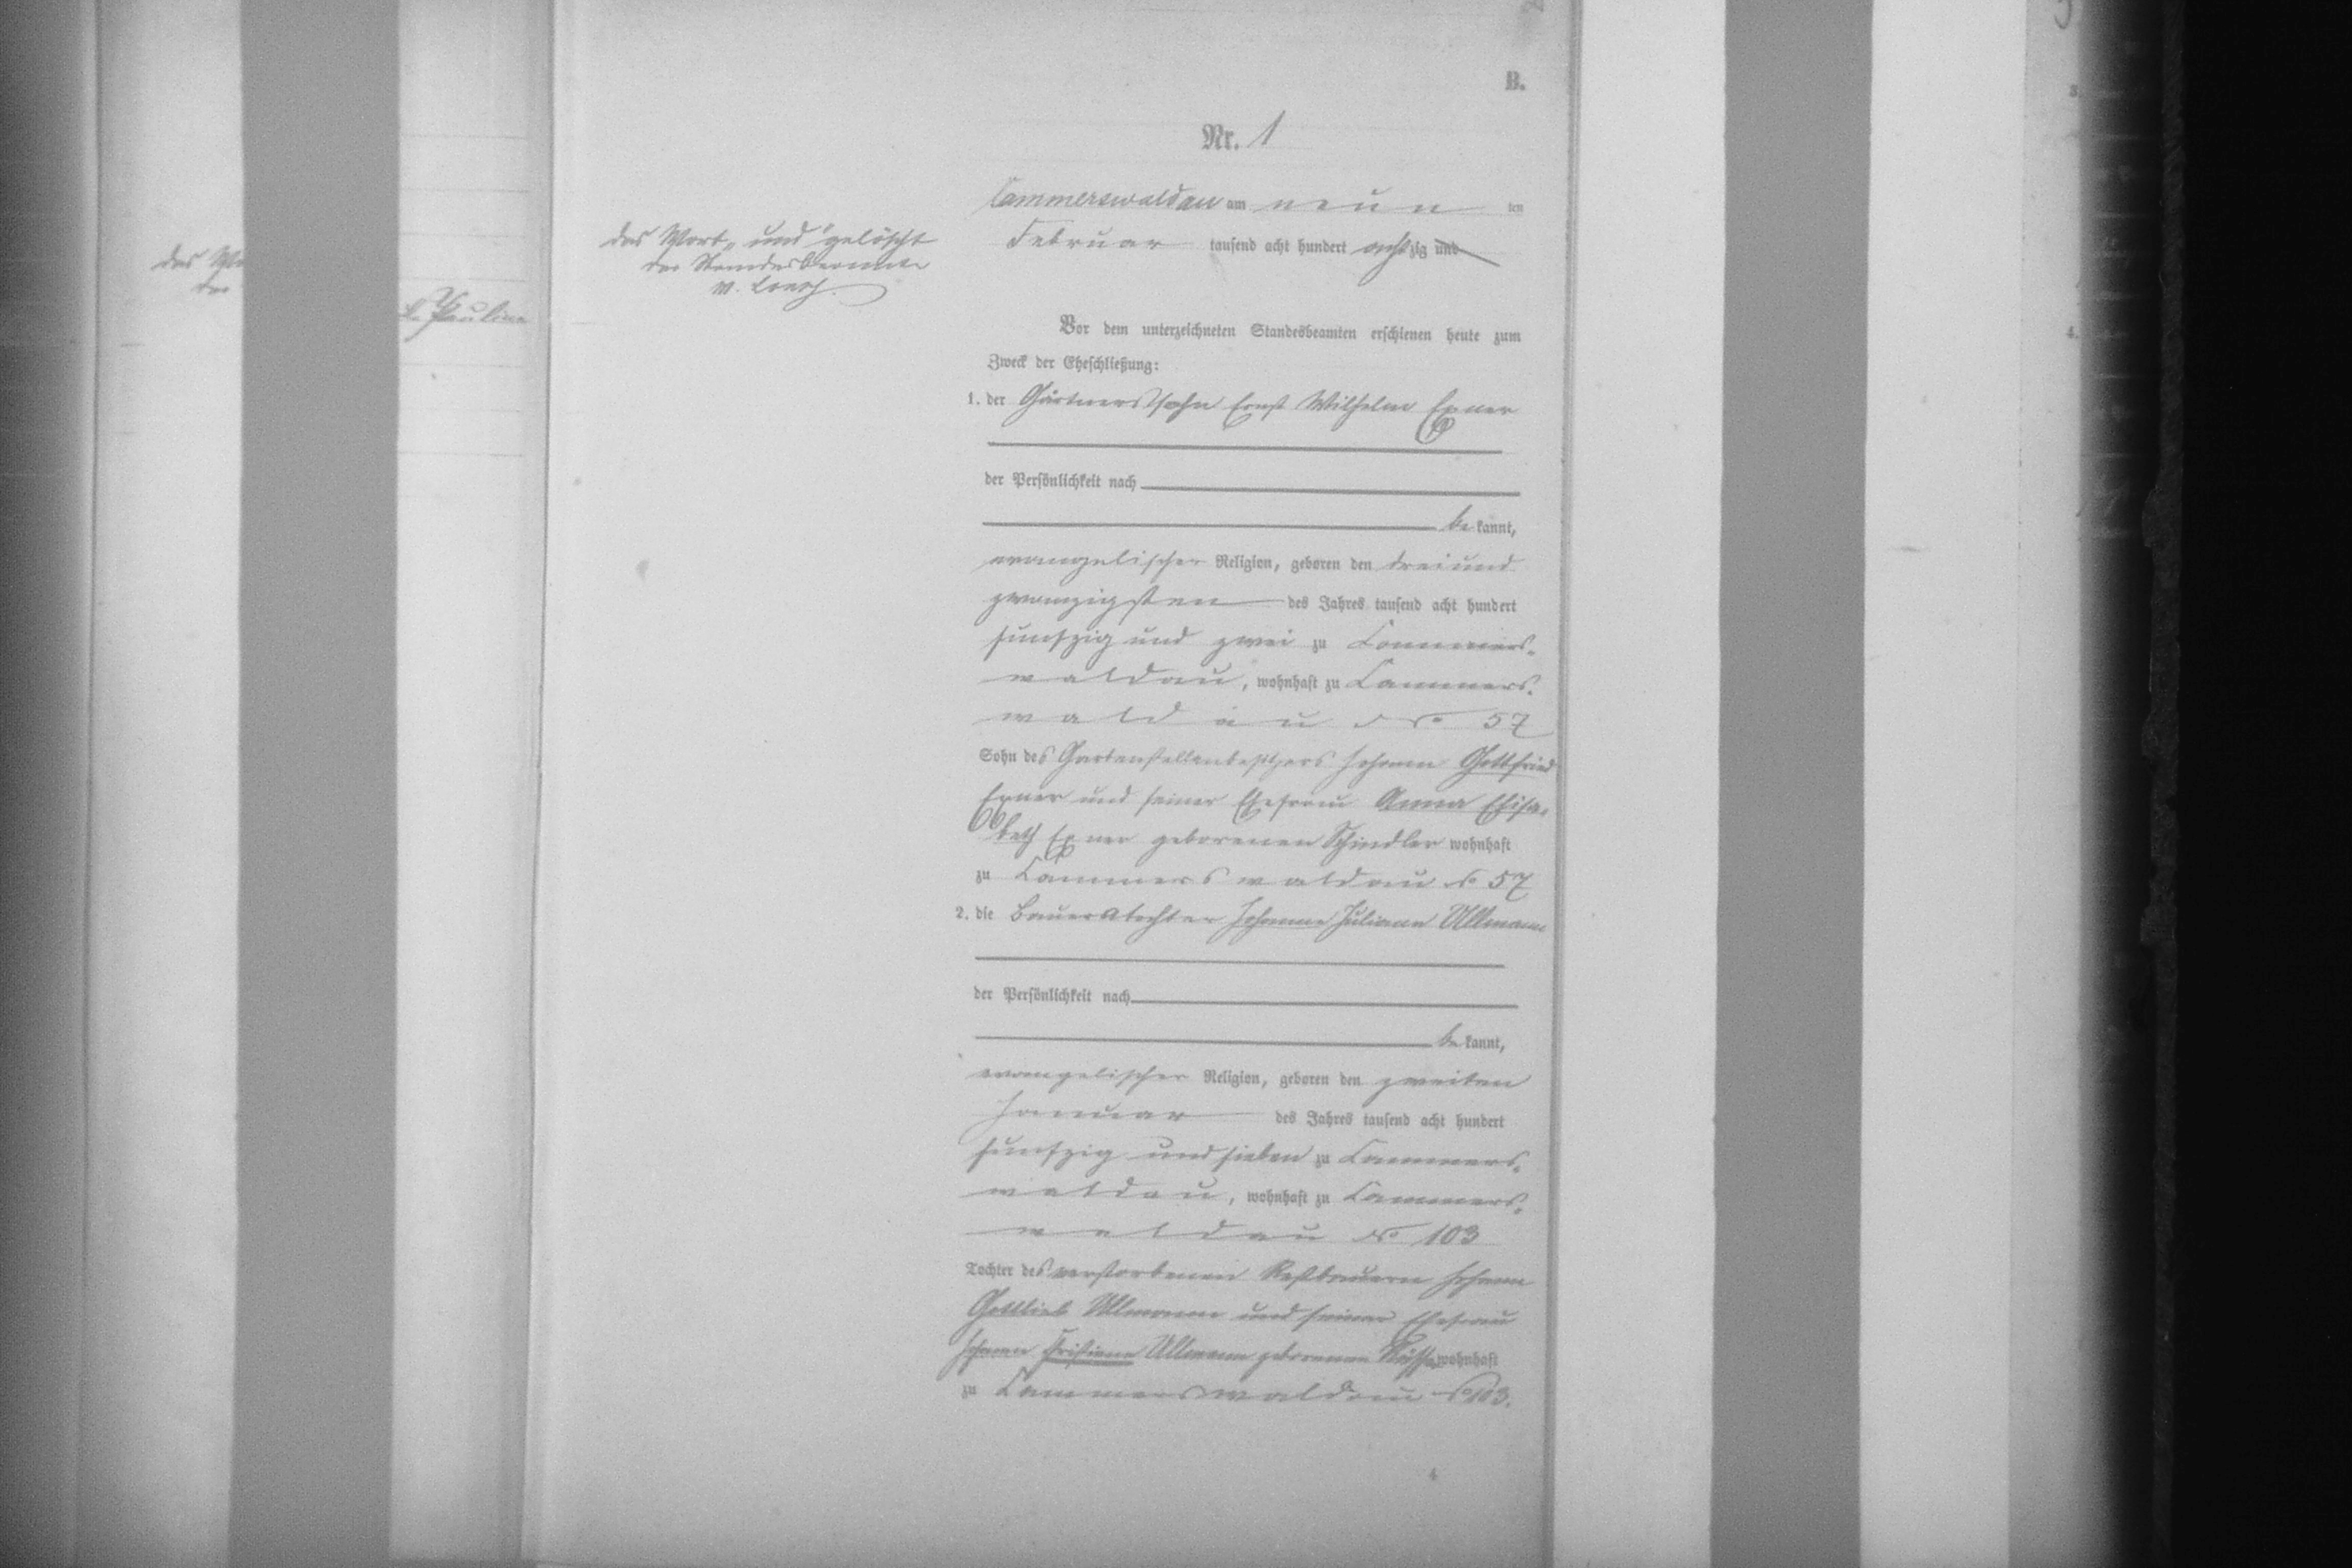 B.
Nr. 1
Cammerswaldau am neun ten
Februar tausend acht hundert achtzig und
das Wort "und" gelöscht
der Standesbeamte
das
der
Pauline
Vor dem unterzeichneten Standesbeamten erschienen heute zum
Zweck der Eheschließung:
1. der Gärtnerssohn Ernst Wilhelm Exner
der Persönlichkeit nach
be kannt,
evangelischer Religion, geboren den dreiund
zwanzigsten des Jahres tausend acht hundert
funfzig und zwei zu Cammers-
waldau, wohnhaft zu Cammers-
waldau No 57
Sohn des Gartenstellenbesitzers Johann Gottfried
Exner und seiner Ehefrau Anna Elisa-
beth Exner geborenen Schindler wohnhaft
zu Cammerswaldau No 57
2. die Bauerstochter Johanne Juliane Ullmann
der Persönlichkeit nach
be kannt,
evangelischer Religion, geboren den zweiten
Januar des Jahres tausend acht hundert
funfzig und sieben zu Cammers-
waldau, wohnhaft zu Cammers-
waldau No 103
Tochter des verstorbenen Restbauern Johann
Gottlieb Ullmann und seiner Ehefrau
Johanne Christiane Ullmann geborenen wohnhaft
zu Cammerswaldau No 103.
4
3.
4.